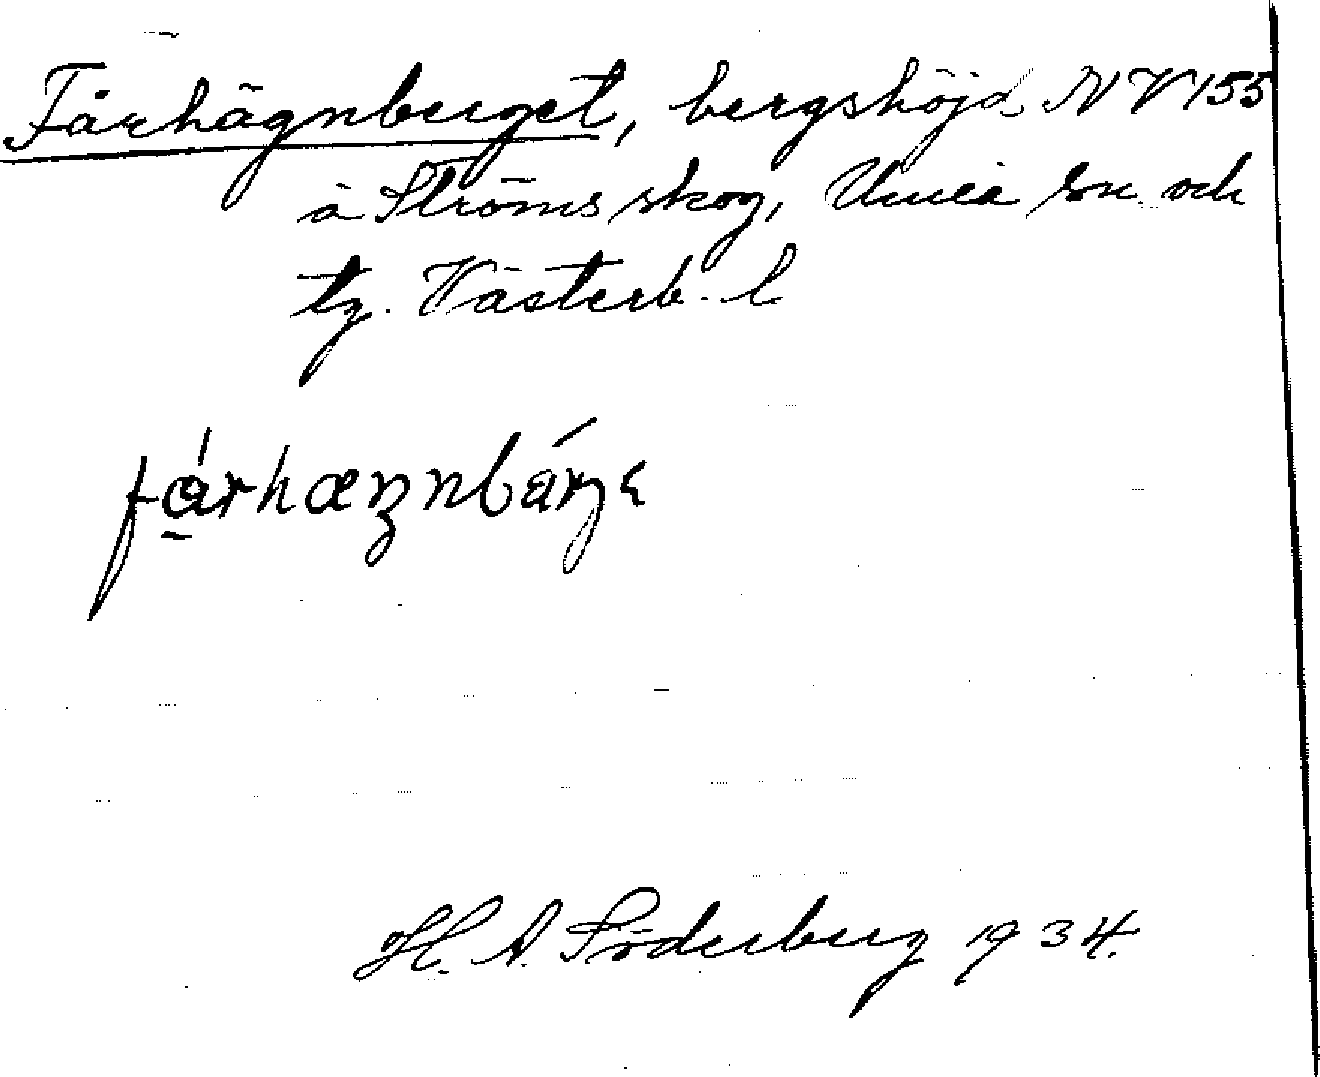 Fårhägnberget, bergshöjd NV 155
å Ströms skog, Umeå sn och
tg. Västerb. l
fårhæʒnbárʒɛ
H. A. Söderberg 1934.